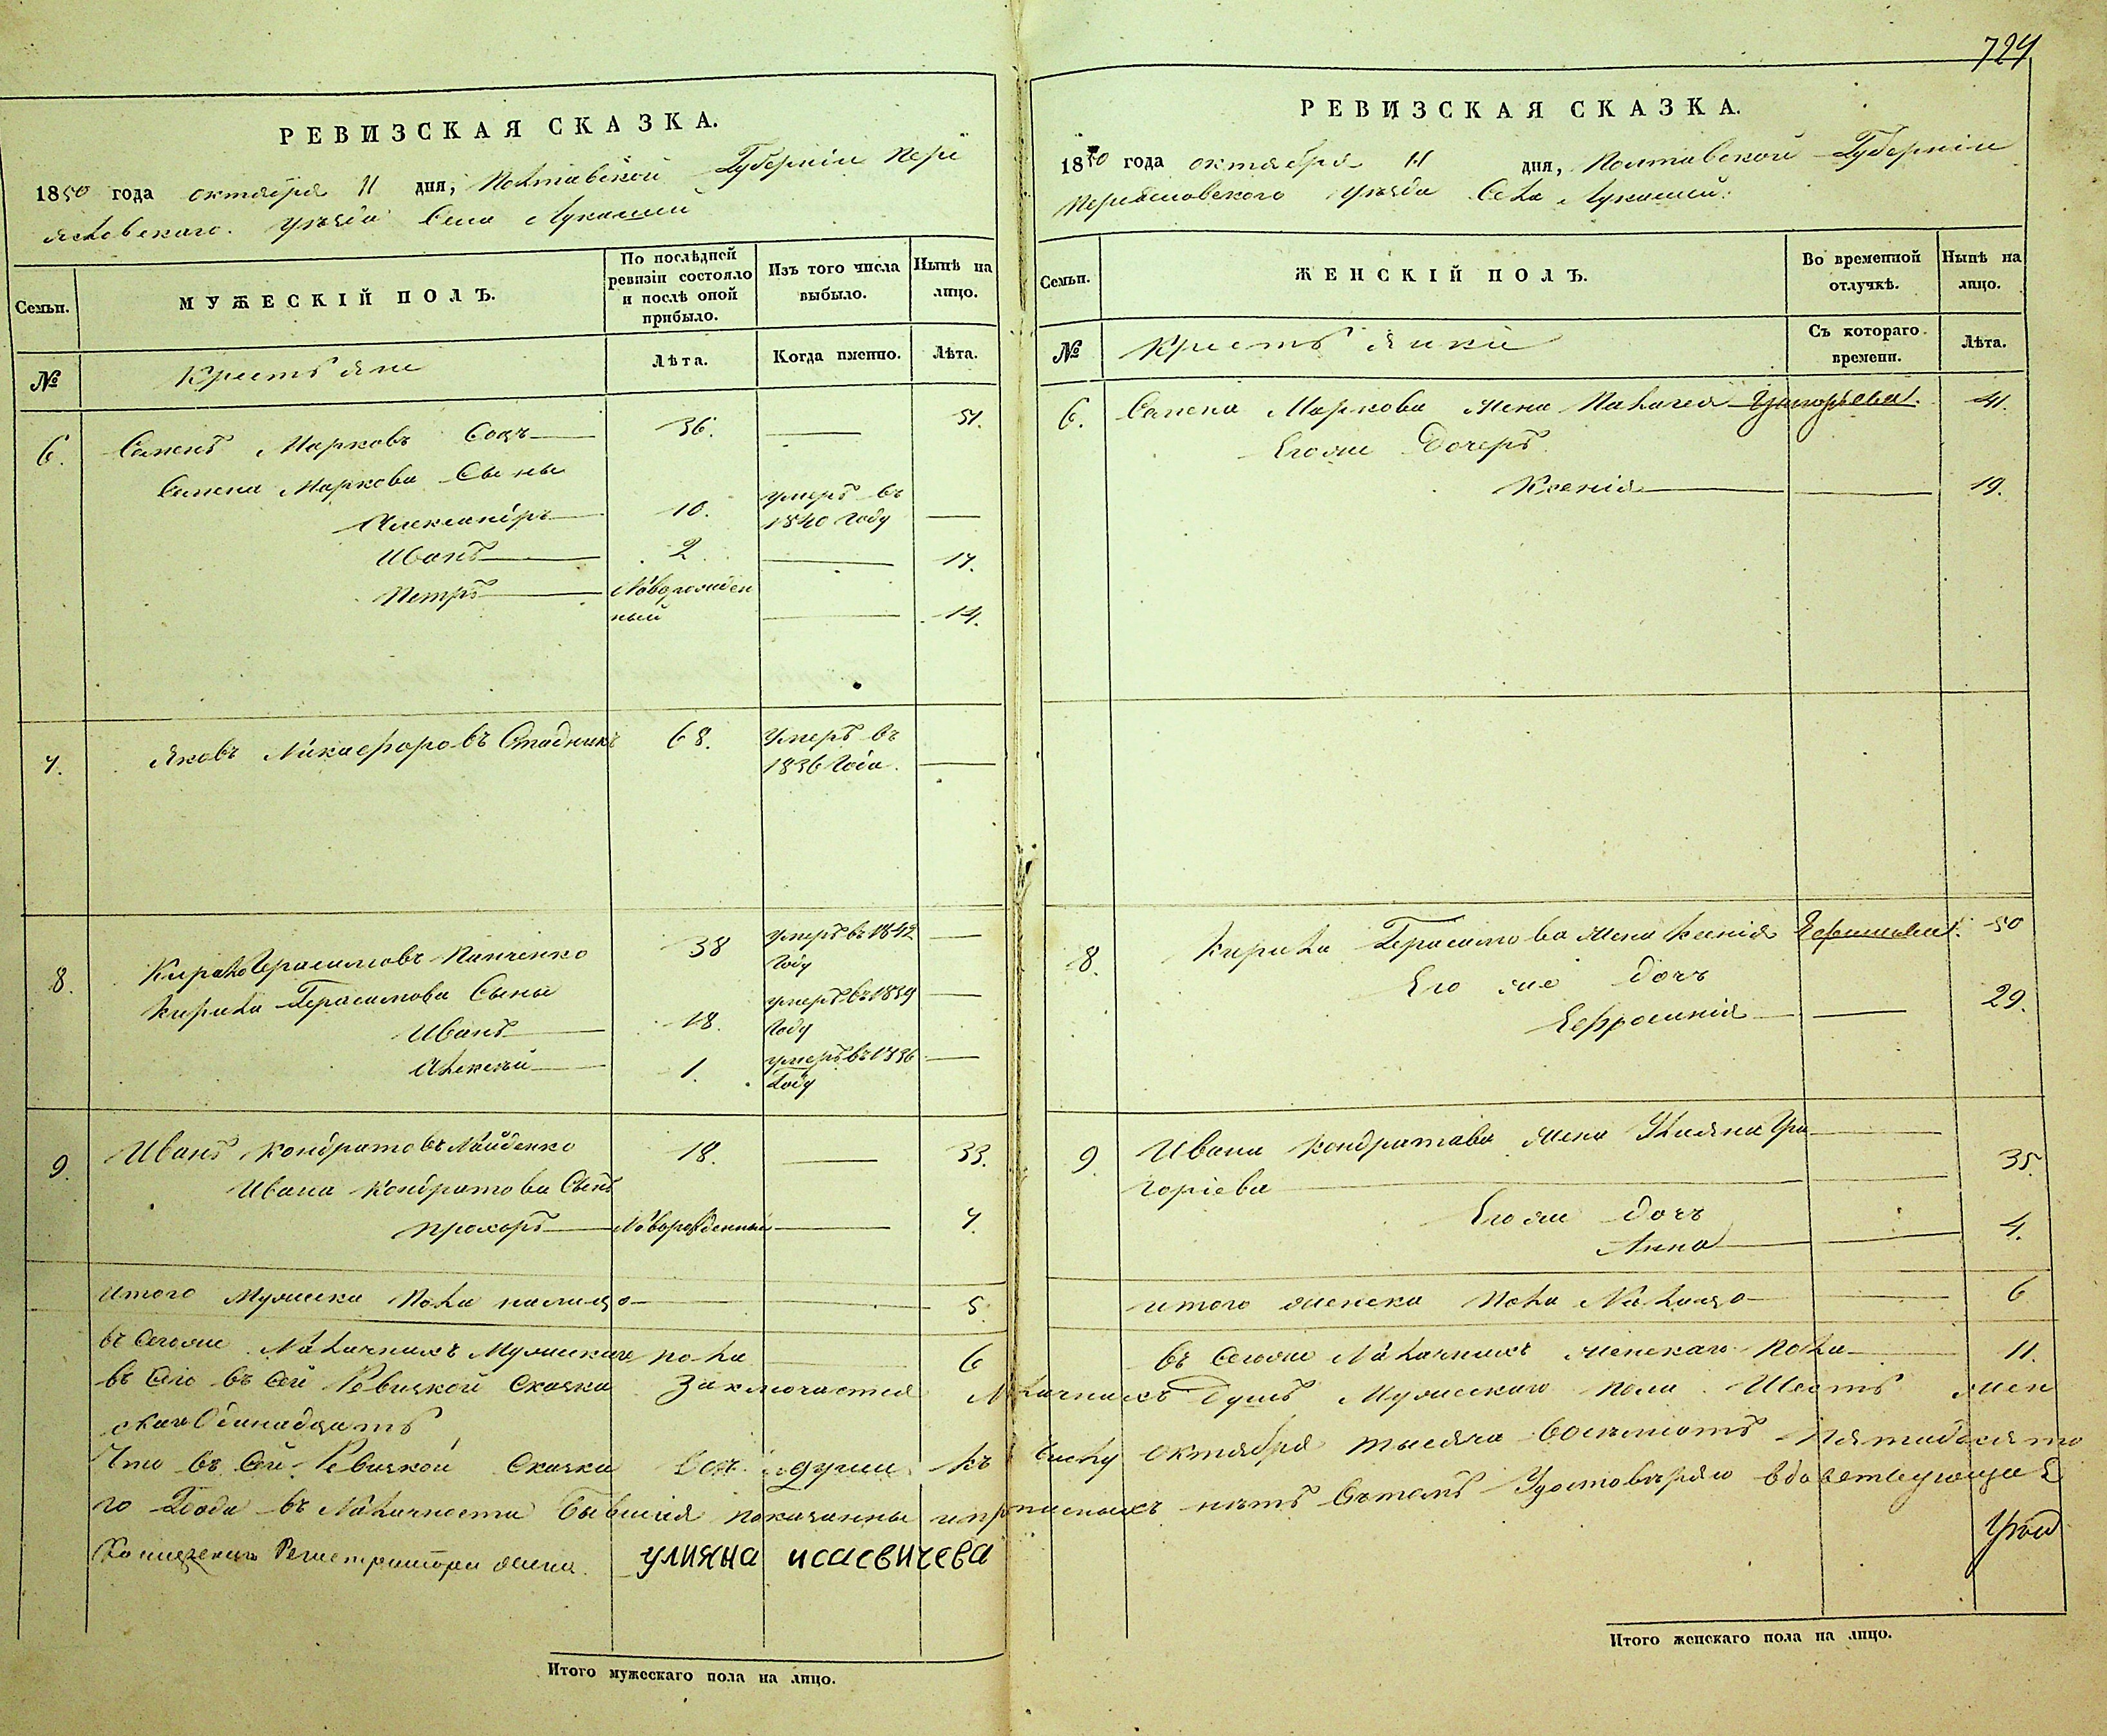 724
РЕВИЗСКАЯ СКАЗКА.
1850 года октября 11 дня, Полтавской Губернiи Пере
яславскаго Уезда Села Лукашей
Семьи.
МУЖЕСКІЙ ПОЛЪ.
По послѣдней ревизіи состояло и послѣ оной прибыло.
Изъ того числа выбыло.
Нынѣ на лицо.
№
Крестьяне
Лѣта.
Когда именно.
Лѣта.
6. Семенъ Марковъ 36. 51.
Семена Маркова Сыны
Александръ 10. умеръ въ 1840 году
Иванъ 2 17.
Петръ Новорожденный 14.
7. Яковъ Никифоровъ Стадникъ 68. Умеръ въ 1836 Года.
8. Кирило Герасимовъ Панченко 38 умеръ въ 1842 году
Кирила Герасимова Сыны
Иванъ 18. умеръ въ 1839 году
Алексѣй 1. умеръ въ 1836 Году
9. Иванъ Кондратовъ Найденко 18. 33.
Ивана Кондратова Сынъ
Прохоръ Новорожденный 7.
Итого Мужеска Пола налицо 5.
въ Сегоже Наличныхъ Мужескаго пола 6
РЕВИЗСКАЯ СКАЗКА.
1850 года октября 11 дня, Полтавской Губернiи
Переяславского Уезда Села Лукашей:
Семьи.
ЖЕНСКІЙ ПОЛЪ.
Во временной отлучкѣ.
Нынѣ на лицо.
№
Крестьянки
Съ котораго времени.
Лѣта.
6. Семена Маркова жена Палагея 41.
Егоже Дочерь
Ксенія 19.
8. Кирила Герасимова жена Ксенія 50
Его же дочь
Ефросинія 29.
9. Ивана Кондратова жена Ульяна Гри
горіева 35.
Егоже дочь
Анна 4.
итого женска пола Налицо 6
въ Сегоже Наличныхъ женскаго пола 11.
въ Сей Ревизкой Сказки Заключается Наличныхъ Душъ Мужескаго пола Шесть жен
скаго Одинадцать
Что въ Сей Ревизкой Сказки Все души къ Числу октября тысяча восемсотъ Пятидесято
го Года въ Наличности бывшія показанны и прописныхъ нѣтъ Вътомъ Удостовѣряю
Регистратора жена улияна исаевичева
Итого мужескаго пола на лицо.
Итого женскаго пола на лицо.